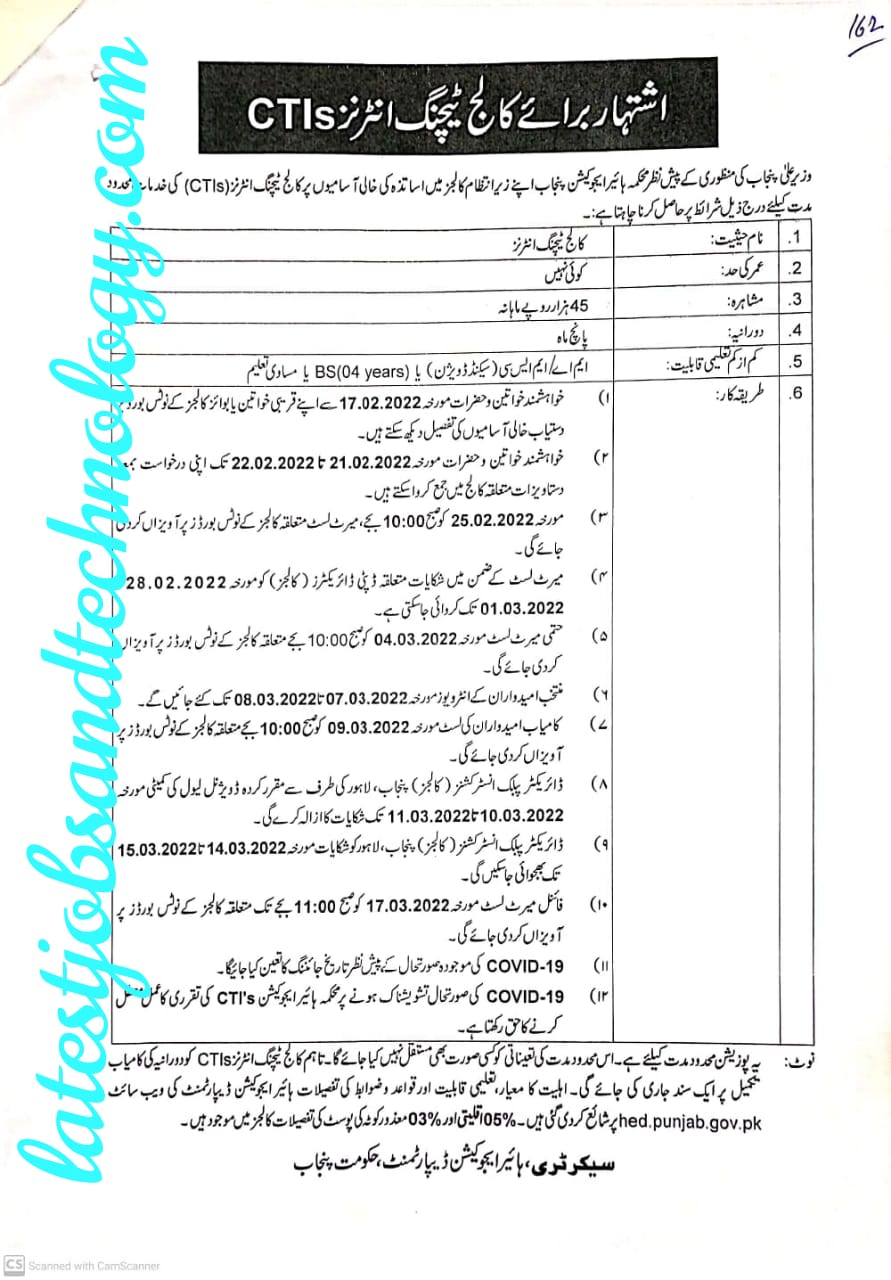 162
اشتہار برائے کالج ٹیچنگ انٹرنز CTIs
وزیر اعلیٰ پنجاب کی منظوری کے پیش نظر محکمہ ہائیر ایجوکیشن پنجاب اپنے زیر انتظام کالجز میں اساتذہ کی خالی آسامیوں پر کالج ٹیچنگ انٹرنز (CTIs) کی خدمات محدود
مدت کیلئے درج ذیل شرائط پر حاصل کرنا چاہتا ہے:۔
1. نام حیثیت: کالج ٹیچنگ انٹرنز
2. عمر کی حد: کوئی نہیں
3. مشاہرہ: 45 ہزار روپے ماہانہ
4. دورانیہ: پانچ ماہ
5. کم از کم تعلیمی قابلیت: ایم اے/ ایم ایس سی (سیکنڈ ڈویژن) یا BS(04 years) یا مساوی تعلیم
6. طریقہ کار: ۱) خواہشمند خواتین و حضرات مورخہ 17.02.2022 سے اپنے قریبی خواتین یا بوائز کالجز کے نوٹس بورڈ پر
دستیاب خالی آسامیوں کی تفصیل دیکھ سکتے ہیں۔
۲) خواہشمند خواتین و حضرات مورخہ 21.02.2022 تا 22.02.2022 تک اپنی درخواست بمعہ
دستاویزات متعلقہ کالج میں جمع کروا سکتے ہیں۔
۳) مورخہ 25.02.2022 کو صبح 10:00 بجے، میرٹ لسٹ متعلقہ کالجز کے نوٹس بورڈز پر آویزاں کر دی
جائے گی۔
۴) میرٹ لسٹ کے ضمن میں شکایات متعلقہ ڈپٹی ڈائریکٹرز (کالجز) کو مورخہ 28.02.2022
01.03.2022 تک کروائی جا سکتی ہے۔
۵) حتمی میرٹ لسٹ مورخہ 04.03.2022 کو صبح 10:00 بجے متعلقہ کالجز کے نوٹس بورڈز پر آویزاں
کر دی جائے گی۔
۶) منتخب امیدواران کے انٹرویوز مورخہ 07.03.2022 تا 08.03.2022 تک کئے جائیں گے۔
۷) کامیاب امیدواران کی لسٹ مورخہ 09.03.2022 کو صبح 10:00 بجے متعلقہ کالجز کے نوٹس بورڈز پر
آویزاں کر دی جائے گی۔
۸) ڈائریکٹر پبلک انسٹرکشنز (کالجز) پنجاب، لاہور کی طرف سے مقرر کردہ ڈویژنل لیول کی کمیٹی مورخہ
10.03.2022 تا 11.03.2022 تک شکایات کا ازالہ کرے گی۔
۹) ڈائریکٹر پبلک انسٹرکشنز (کالجز) پنجاب، لاہور کو شکایات مورخہ 14.03.2022 تا 15.03.2022
تک بھجوائی جا سکیں گی۔
۱۰) فائنل میرٹ لسٹ مورخہ 17.03.2022 کو صبح 11:00 بجے تک متعلقہ کالجز کے نوٹس بورڈز پر
آویزاں کر دی جائے گی۔
۱۱) COVID-19 کی موجودہ صورتحال کے پیش نظر تاریخ جائننگ کا تعین کیا جائیگا۔
۱۲) COVID-19 کی صورتحال تشویشناک ہونے پر محکمہ ہائیر ایجوکیشن CTI's کی تقرری کا عمل
کرنے کا حق رکھتا ہے۔
نوٹ: یہ پوزیشن محدود مدت کیلئے ہے۔ اس محدود مدت کی تعیناتی کو کسی صورت بھی مستقل نہیں کیا جائے گا۔ تاہم کالج ٹیچنگ انٹرنز CTIs کو دورانیہ کی کامیاب
تکمیل پر ایک سند جاری کی جائے گی۔ اہلیت کا معیار، تعلیمی قابلیت اور قواعد و ضوابط کی تفصیلات ہائیر ایجوکیشن ڈیپارٹمنٹ کی ویب سائٹ
hed.punjab.gov.pk پر شائع کر دی گئی ہیں۔ 05% اقلیتی اور 03% معذور کوٹہ کی پوسٹ کی تفصیلات کالجز میں موجود ہیں۔
سیکرٹری، ہائیر ایجوکیشن ڈیپارٹمنٹ، حکومت پنجاب
latestjobsandtechnology.com
CS Scanned with CamScanner